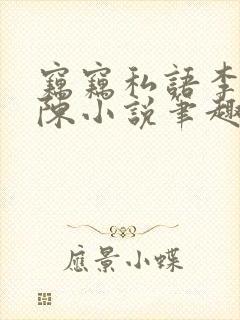 竊竊私語李
陳小说筆趣
應景小蝶